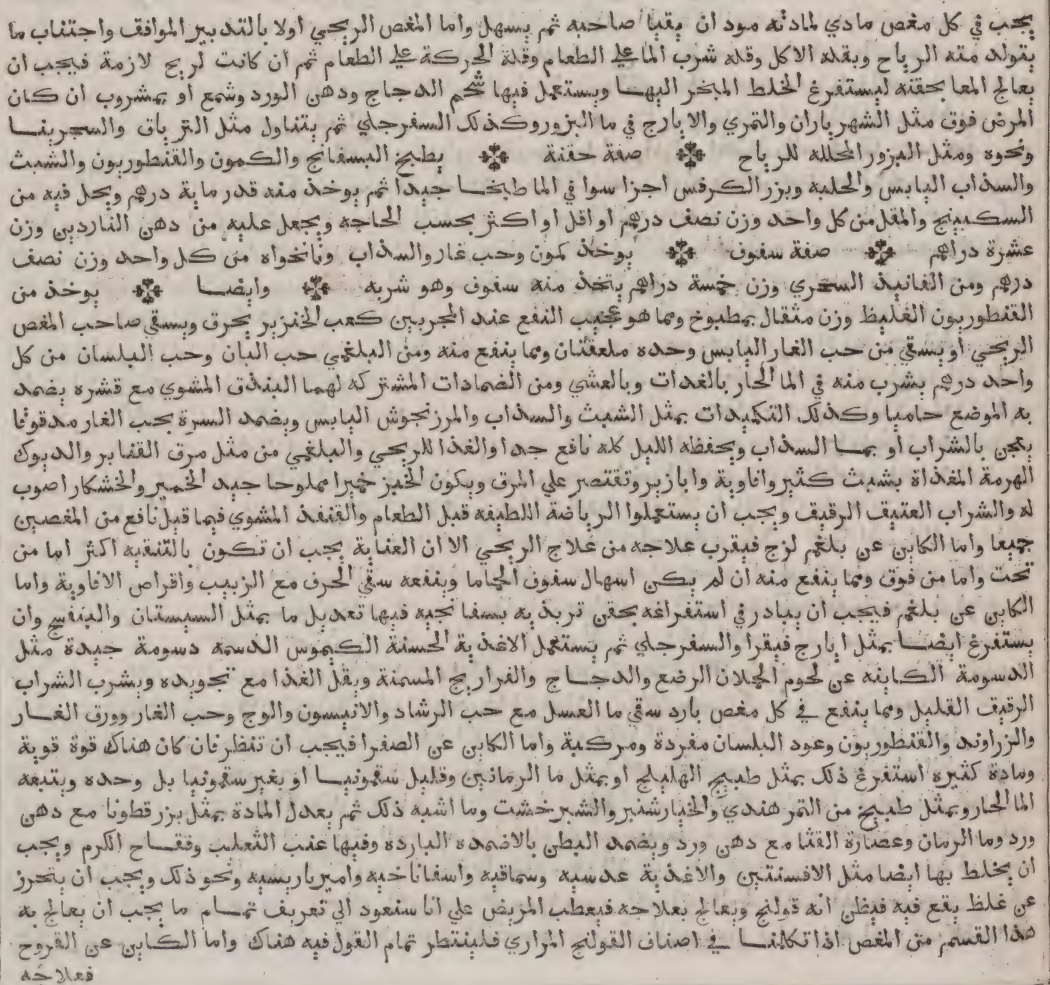 يجب في كل مغص مادي لمادته مود ان يقيا صاحبه ثم يسهل واما المغص الريحي اولا بالتدبير الموافق واجتناب ما
يتولد منه الرياح وبقله الاكل وقله شرب الما علي الطعام وقلة الحركة علي الطعام ثم ان كانت لريح لازمة فيجب ان
يعالج المعا بحقنه ليستفرغ الخلط المبخر اليهـا ويستعمل فيها شحم الدجاج ودهن الورد وشمع او بمشروب ان كان
المرض فوق مثل الشهرياران والتمري والايارج في ما البزور وكذلك السفرجلي ثم يتناول مثل الترياق والسجرينـا
ونحوه ومثل البزور المحلله للرياح صفة حقنة يطبخ البسفايج والكمون والقنطوريون والشبث
والسذاب اليابس والحلبه وبزر الكرفس اجزا سوا في الما طبخـا جيدا ثم يوخذ منه قدر ماية درهم ويحل فيه من
السكبينج والمقل من كل واحد وزن نصف درهم او اقل او اكثر بحسب الحاجه ويجعل عليه من دهن الناردين وزن
عشرة دراهم صفة سفوف يوخذ كمون وحب غار والسذاب ونانخواه من كل واحد وزن نصف
درهم ومن الفانيذ السجزي وزن خمسة دراهم يتخذ منه سفوف وهو شربه وايضـا يوخذ من
القنطوريون الغليظ وزن مثقال بمطبوخ ومما هو عجيب النفع عند المجربين كعب الخنزير يحرق ويسقي صاحب المغص
الريحي او يسقي من حب الغار اليابس وحده ملعقتان ومما ينفع منه ومن البلغمي حب البان وحب البلسان من كل
واحد درهم يشرب منه في الما الحار بالغدات وبالعشي ومن الضمادات المشتركه لهما البندق المشوي مع قشره يضمد
به الموضع حاميا وكذلك التكميدات بمثل الشبث والسذاب والمرزنجوش اليابس ويضمد السرة بحب الغار مدقوقا
يعجن بالشراب او بمـا السذاب ويحفظه الليل كله نافع جدا والغذا للريحي والبلغمي من مثل مرق القنابر والديوك
الهرمة المغذاة بشبث كثير وافاوية وابازير وتقتصر علي المرق ويكون الخبز خميرا مملوحا جيد الخمير والخشكار اصوب
له والشراب العتيق الرقيق ويجب ان يستعملوا الرياضه اللطيفه قبل الطعام والقنفذ المشوي فيما قيل نافع من المغصين
جميعا واما الكاين عن بلغم لزج فيقرب علاجه من علاج الريحي الا ان العناية يجب ان تكون بالتنقيه اكثر اما من
تحت واما من فوق ومما ينفع منه ان لم يكن اسهال سفوف الحماما وينفعه سقي الحرف مع الزبيب واقراص الافاوية واما
الكاين عن بلغم فيجب ان يبادر في استفراغه بحقن تربذيه بسفانجيه فيها تعديل ما بمثل السبستان والبنفسج وان
يستفرغ ايضـا بمثل ايارج فيقرا والسفرجلي ثم يستعمل الاغذية الحسنة الكيموس الدسمه دسومة جيدة مثل
الدسومة الكاينه عن لحوم الحملان الرضع والدجـاج والفراريج المسمنة ويقل الغذا مع تجويده ويشرب الشراب
الرقيق القليل ومما ينفع في كل مغص بارد سقي ما العسل مع حب الرشاد والانيسون والوج وحب الغار وورق الغـار
والزراوند والقنطوريون وعود البلسان مفردة ومركبة واما الكاين عن الصفرا فيجب ان تنظر فان كان هناك قوة قوية
ومادة كثيره استفرغ ذلك بمثل طبيخ الهليلج او بمثل ما الرمانين وقليل سقمونيـا او بغير سقمونيا بل وحده ويتبعه
الما الحار وبمثل طبيخ من التمر هندي والخيارشنبر والشيرخشت وما اشبه ذلك ثم يعدل المادة بمثل بزرقطونا مع دهن
ورد وما الرمان وعصارة القثا مع دهن ورد ويضمد البطن بالاضمده البارده وفيها عنب الثعلب وفقـاح الكرم ويجب
ان يخلط بها ايضا مثل الافسنتين والاغذية عدسيه وسماقيه واسفاناخيه واميرباريسيه ونحو ذلك ويجب ان يتحرز
عن غلط يقع فيه فيظن انه قولنج ويعالج بعلاجه فيعطب المريض علي انا سنعود الي تعريف تمـام ما يجب ان يعالج به
هذا القسم من المغص اذا تكلمنـا في اصناف القولنج المراري فلينتظر تمام القول فيه هناك واما الكاين عن القروح
فعلاجه